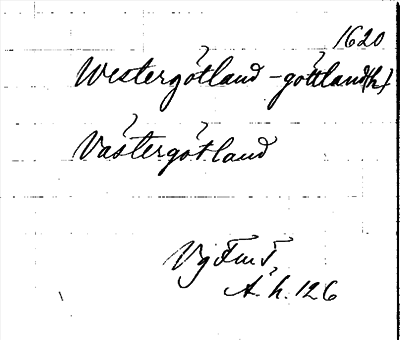 1620
Westergötland -göttland(h)
Västergötland
Vg Fm T
A. h. 126